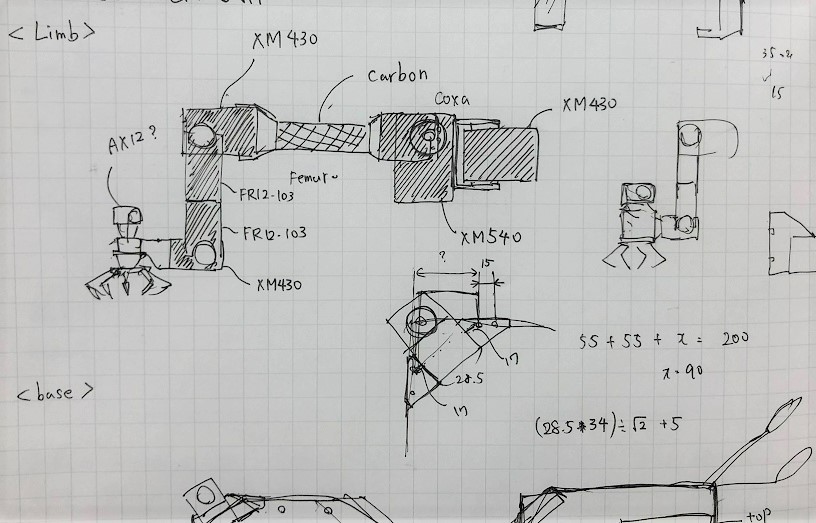 < Limb >
XM430
Carbon
Coxa
XM430
35
15
AX12?
Femur
FR12-103
FR12-103
XM540
XM430
?
15
17
28.5
17
55 + 55 + x = 200
x = 90
< base >
(28.5*34) ÷ √2 + 5
top